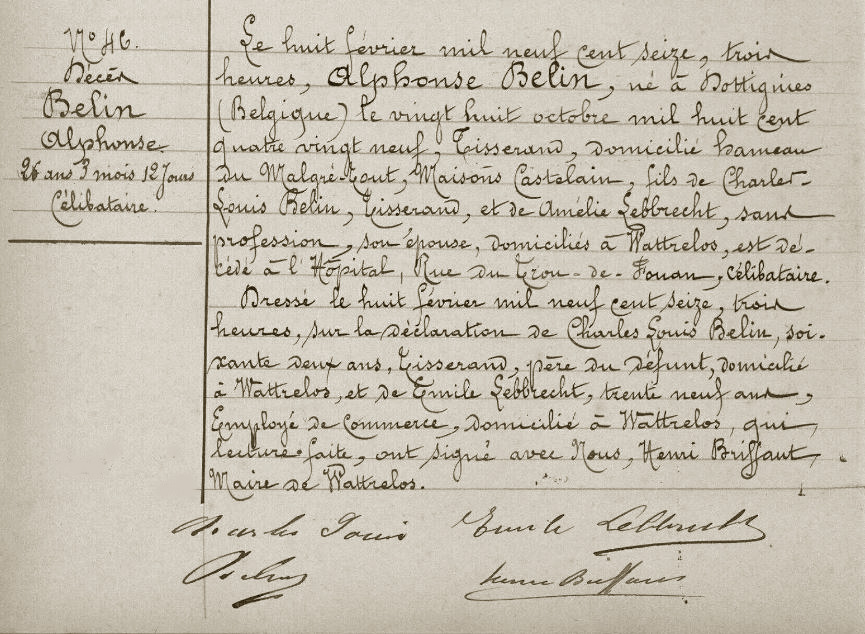 No 46.
Décès
Belin
Alphonse.
26 ans 3 mois 12 Jours
Célibataire.
Le huit février mil neuf cent seize, trois
heures, Alphonse Belin, né à Dottignies
(Belgique) le vingt huit octobre mil huit cent
quatre vingt neuf, Tisserand, domicilié hameau
du Malgré-Tout, Maisons Castelain, fils de Charles-
Louis Belin, Tisserand, et de Amélie Lebbrecht, sans
profession, son épouse, domiciliés à Wattrelos, est dé-
cédé à l'Hôpital, Rue du Trou-de-Fouan, célibataire.
Dressé le huit février mil neuf cent seize, trois
heures, sur la déclaration de Charles Louis Belin, soi-
xante deux ans, Tisserand, père du défunt, domicilié
à Wattrelos, et de Emile Lebbrecht, trente neuf ans,
Employé de Commerce, domicilié à Wattrelos, qui,
lecture faite, ont signé avec Nous, Henri Briffaut,
Maire de Wattrelos.
Charles Louis Emile Lebbrecht
Belin Henri Briffaut